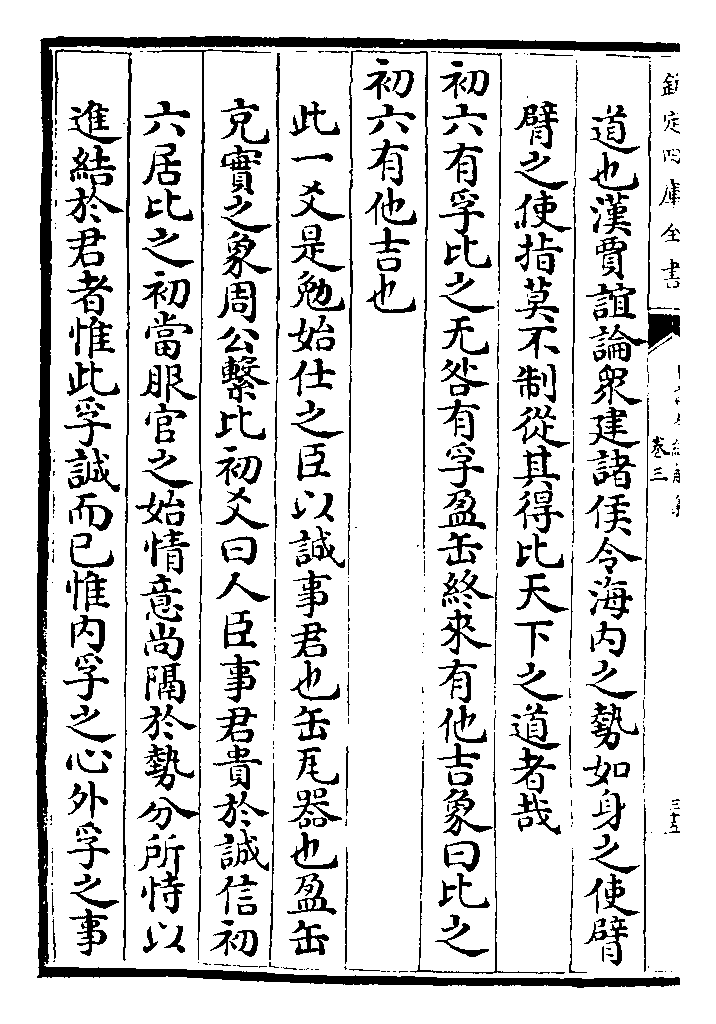 欽定四庫全書
卷三
三五
道也漢賈誼論衆建諸侯令海内之勢如身之使臂
臂之使指莫不制從其得比天下之道者哉
初六有孚比之无咎有孚盈缶終來有他吉象曰比之
初六有他吉也
此一爻是勉始仕之臣以誠事君也缶瓦器也盈缶
克實之象周公繫比初爻曰人臣事君貴於誠信初
六居比之初當服官之始情意尚隔於勢分所恃以
進結於君者惟此孚誠而已惟内孚之心外孚之事